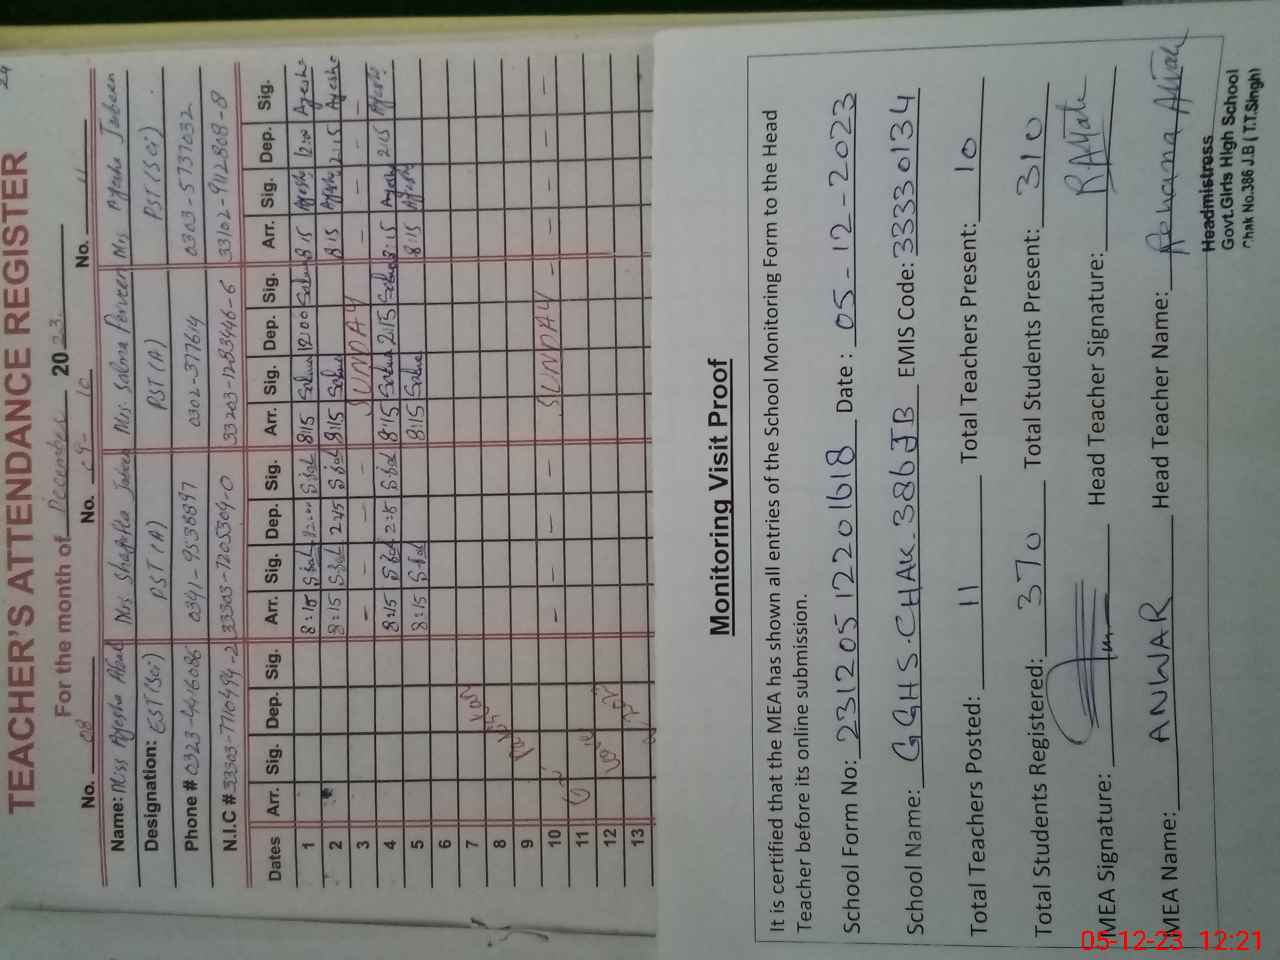 24
TEACHER'S ATTENDANCE REGISTER
For the month of December 2023
No. 08 No. 09 - 10 No. 11
Name: Miss Ayesha Mrs Shafifla Mrs. Salma Perveen Mrs Ayesha Jabeen
Designation: EST(Sci) PST (A) PST (A) PST (Sci)
Phone # 0323-4416086 0341-9538897 0302-377614 0303-5737032
N.I.C # 33303-7710494-2 33303-7205304-0 33203-1283446-6 33102-9112808-8
Dates Arr. Sig. Dep. Sig. Arr. Sig. Dep. Sig. Arr. Sig. Dep. Sig. Arr. Sig. Dep. Sig.
1 8:15 12:00 8:15 Salma 12:00 Salma 8:15 Ayesha 12:00 Ayesha
2 8:15 2:15 8:15 Salma 8:15 Ayesha 2:15 Ayesha
3 - - - - SUNDAY - - - -
4 8:15 2:15 8:15 Salma 2:15 Salma 8:15 Ayesha 2:15 Ayesha
5 8:15 8:15 Salma 8:15 Ayesha
6
7
8
9
10 - - - - SUNDAY - - - -
11
12
13
Monitoring Visit Proof
It is certified that the MEA has shown all entries of the School Monitoring Form to the Head
Teacher before its online submission.
School Form No: 23120512201618 Date : 05-12-2023
School Name: GGHS.CHAK.386JB EMIS Code: 33330134
Total Teachers Posted: 11 Total Teachers Present: 10
Total Students Registered: 370 Total Students Present: 310
MEA Signature: Head Teacher Signature: R.Attah
MEA Name: ANWAR Head Teacher Name: Rehana Attah
Headmistress
Govt.Girls High School
Chak No.386 J.B (T.T.Singh)
05-12-23 12:21